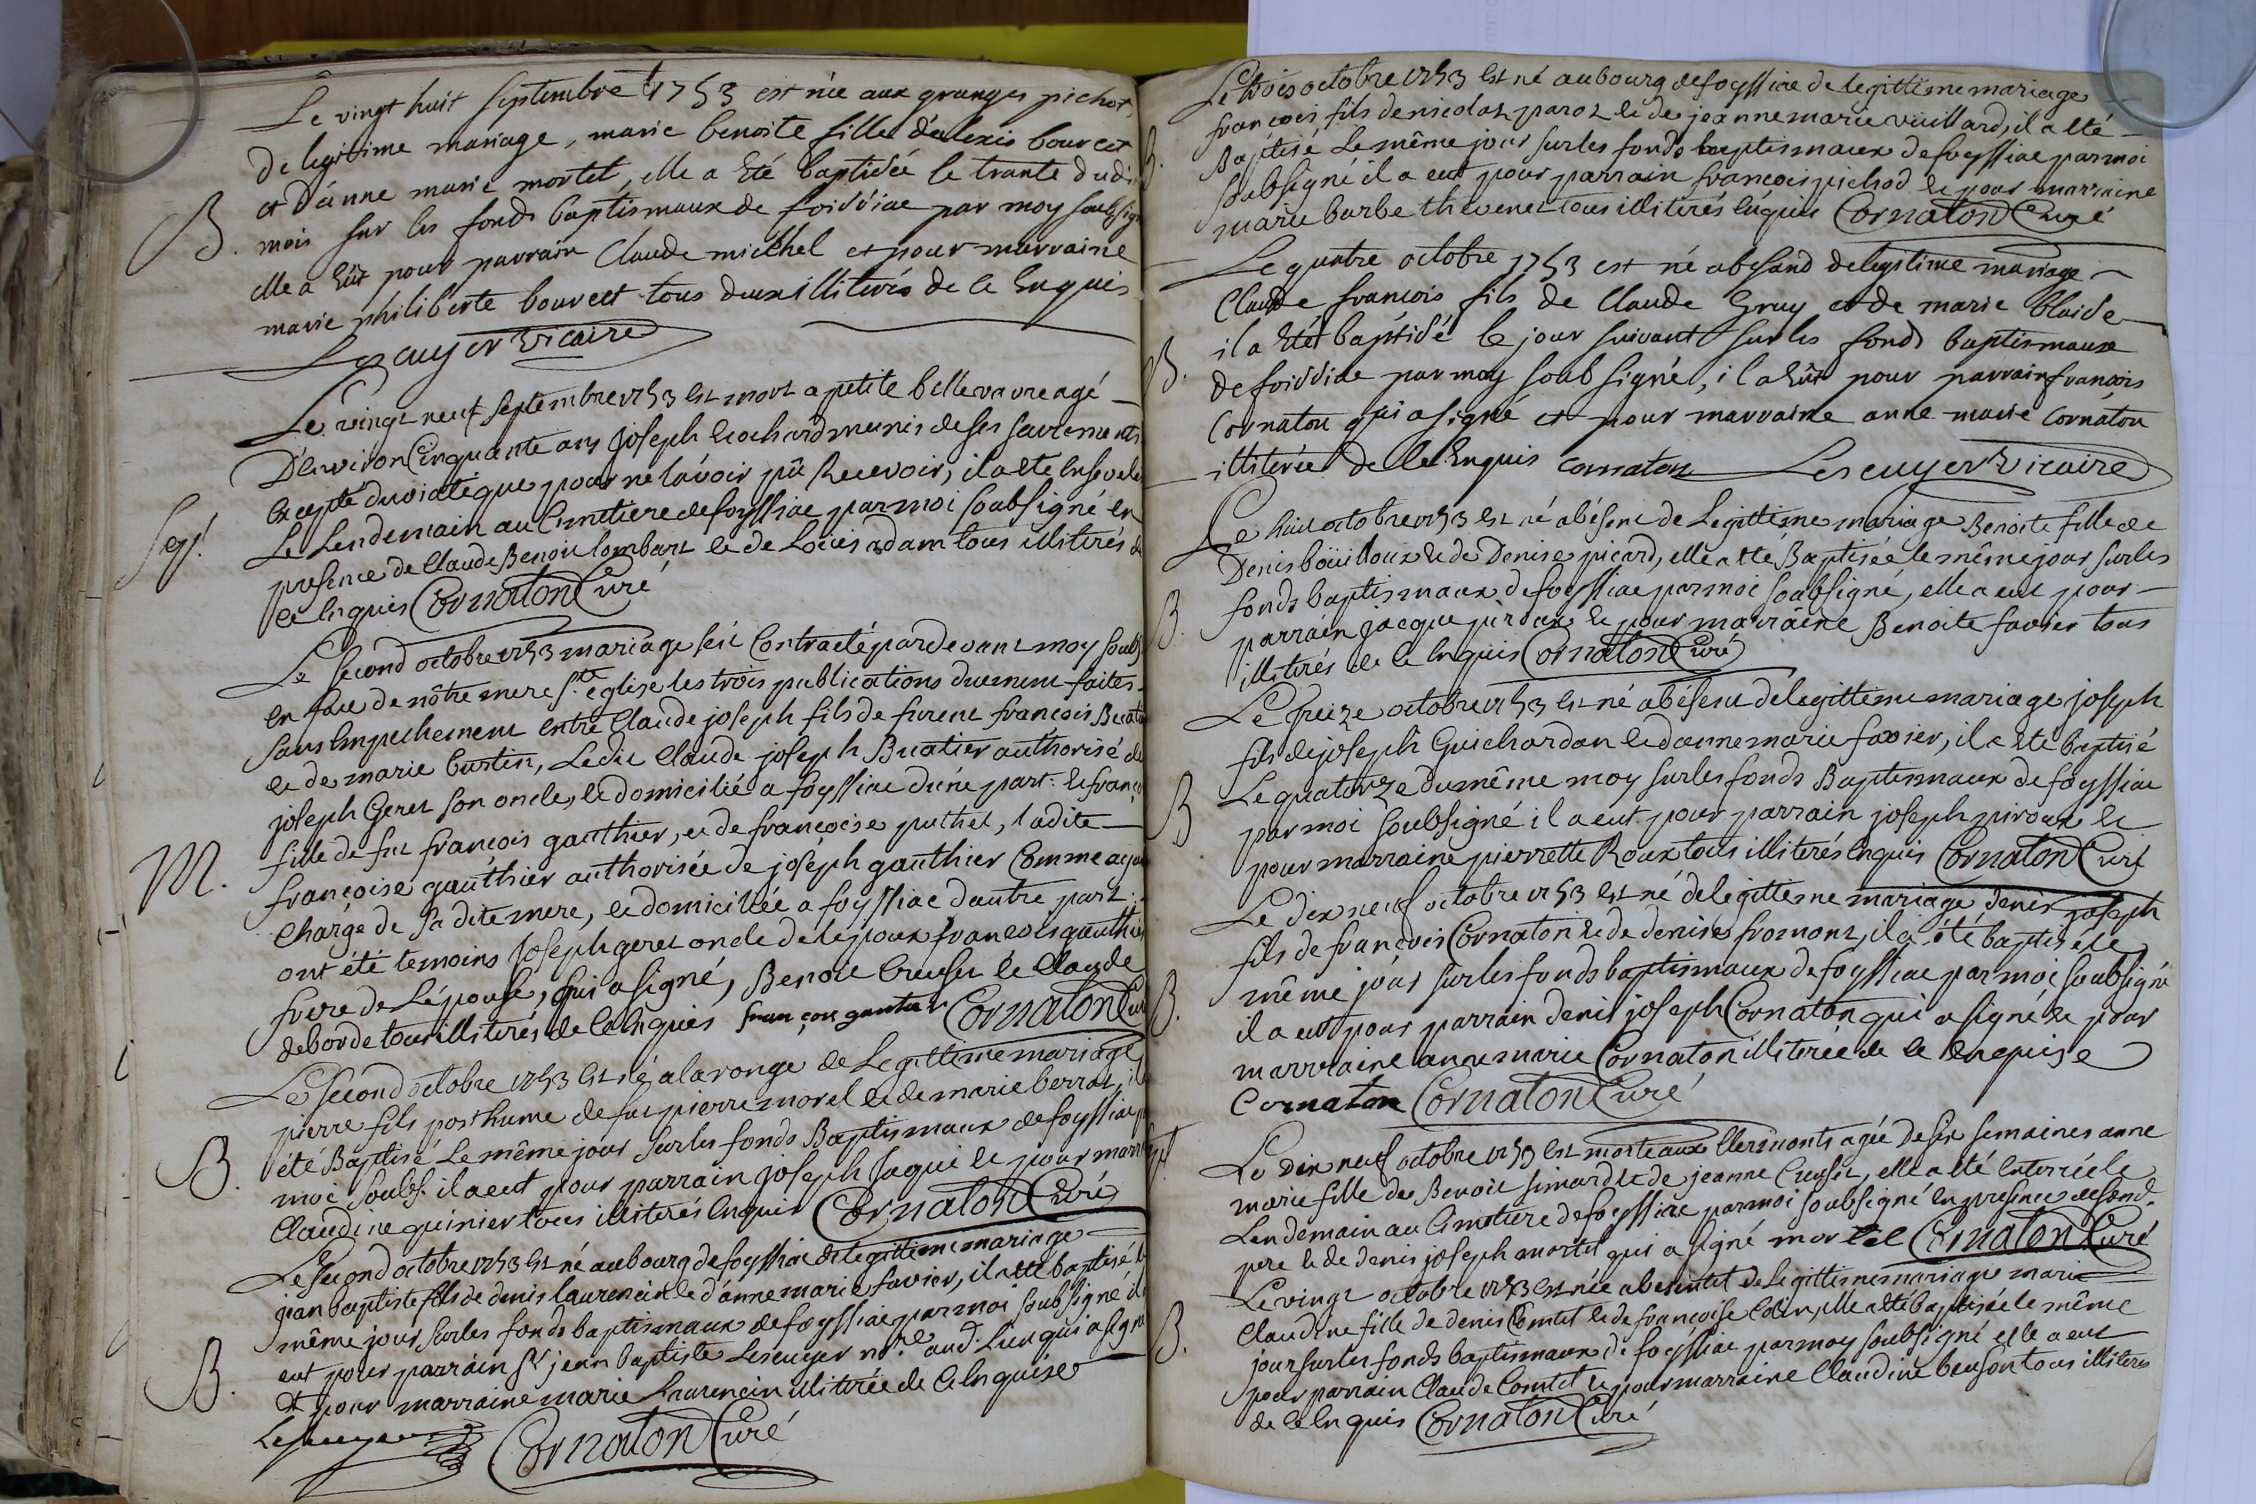 Le vingt huit septembre 1753 est née aux granges pichot,
de legitime mariage, marie benoite fille d'alexis bourcet
et d'anne marie mortel, elle a été baptisée le trante dudi
B. mois sur les fonds baptismaux de foissiac par moy soubsign
elle a eût pour parrain Claude michel et pour marraine
marie philiberte bourcet tous deux illiterés de ce enquis
Lescuyer vicaire
Le vingt neuf septembre 1753 est mort a petite bellevavre agé
D'environ Cinquante ans joseph cochard munis de ses sacrements
excepté du viatique pour ne l'avoir pû Recevoir, il a été enseveli
Sep. Le Lendemain au Cimetiere de foyssiac par moi soubsigné en
presence de Claude Benoit lombart et de Louis adam tous illiterés de
ce enquis Cornaton Curé
Le second octobre 1753 mariage feit Contracté pardevant moy soubs
en face de nôtre mere Ste eglise les trois publications duement faites
sans empechement entre Claude joseph fils de furent francois Buati
et de marie bustin, Ledit Claude joseph Buatier authorisé de
joseph Geret son oncle, et domicilié a foyssiac d'une part: et franço
fille de fut francois gauthier, et de francoise puthet, ladite
M. francoise gauthier authorisée de joséph gauthier Comme ayan
charge de sa dite mere, et domiciliée a foyssiac d'autre part:
ont été temoins Joseph geret oncle de l'époux francois gauthier
frere de l'épouse, qui a signé, Benoit Creuset et Claude
deborde tous illiterés de ce enquis françois gautier Cornaton Cur
Le second octobre 1753 est né a la ronge de Legittime mariage
pierre fils posthume de fut pierre morel et de marie berrat, il a
B. été Baptisé Le même jour sur les fonds Baptismaux de foyssiac p
moi soubs. il a eut pour parrain joseph Jaquet et pour marr
Claudine guinier tous illiterés enquis Cornaton Curé
Le second octobre 1753 est né au bourg de foyssiac de legittime mariage
jean baptiste fils de denis laurencin et d'anne marie favier, il a été baptisé le
même jour sur les fonds baptismaux de foyssiac par moi soubsigné il a
B. eut pour parrain Sr jean baptiste Lescuyer nre aud. Lieu qui a signé
et pour marraine marie Laurencin illiterée de ce enquise
Lescuyer Cornaton Curé
Le trois octobre 1753 est né au bourg de foyssiac de legittime mariage
francois fils de nicolas parot et de jeanne marie vuillard, il a été
B. Baptisé Le même jour sur les fonds baptismaux de foyssiac par moi
soubsigné il a eut pour parrain francois pichod et pour marraine
marie barbe thevenet tous illiterés enquis Cornaton Curé
Le quatre octobre 1753 est né a besand de legitime mariage
Claude francois fils de Claude Gruy et de marie blaise
il a été baptisé le jour suivant sur les fonds baptismaux
B. de foissiac par moy soub signé, il a eût pour parrain francois
Cornaton qui a signé et pour marraine anne marie Cornaton
illiterée de ce enquis cornaton Lescuyer vicaire
Le huit octobre 1753 est né a bésene de Legittime mariage Benoite fille de
Denis boüilloux et de Denise picard, elle a été Baptisée le même jour sur les
B. fonds baptismaux de foyssiac par moi soubsigné, elle a eut pour
parrain jacque piroux et pour marraine Benoite favier tous
illiterés de ce enquis Cornaton Curé
Le treize octobre 1753 est né a bésene de legittime mariage joseph
fils de joseph Guichardan et d'anne marie favier, il a été baptisé
Le quatorze du même moy sur les fonds Baptismaux de foyssiac
B par moi soubsigné il a eut pour parrain joseph piroux et
pour marraine pierrette Roux tous illiterés enquis Cornaton Curé
Le dix neuf octobre 1753 est né de legittime mariage denis joseph
fils de francois Cornaton et de denise fromont, il a été baptisé le
même jour sur les fonds baptismaux de foyssiac par moi soubsigné
B. il a eut pour parrain denis joseph Cornaton qui a signé et pour
marraine anne marie Cornaton illiterée de ce enquise
Cornaton Cornaton Curé
Le dix neuf octobre 1753 est morte aux Clermonts agée de six semaines anne
Sep. marie fille de Benoit simard et de jeanne Creuset, elle a été enterrée le
Lendemain au Cimetiere de foyssiac par moi soubsigné en presence de sond.
pere et de denis joseph mortel qui a signé mortel Cornaton Curé
Le vingt octobre 1753 est née a besentet de legittime mariage marie
Claudine fille de denis Comtet et de francoise Colin, elle a été baptisée le même
B. jour sur les fonds baptismaux de foyssiac par moy soubsigné elle a eut
pour parrain Claude Comtet et pour marraine Claudine beuson tous illiterés
de ce enquis Cornaton Curé